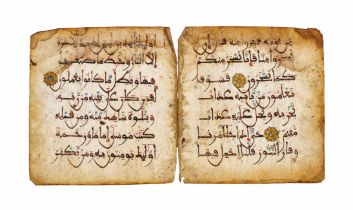 قومه سخروا منه قال إن
تسخروا منا فإنا نسخر منكم
كما تسخرون فسوف
تعلمون من يأتيه عذاب
يخزيه ويحل عليه عذاب
مقيم حتى إذا جاء أمرنا
وفار التنور قلنا احمل فيها
أولئك الذين ليس لهم في الآخرة
إلا النار وحبط ما صنعوا
فيها وبطل ما كانوا يعملون
أفمن كان على بينة من ربه
ويتلوه شاهد منه ومن قبله
كتب موسى إماما ورحمة
أولئك يؤمنون به ومن يكفر